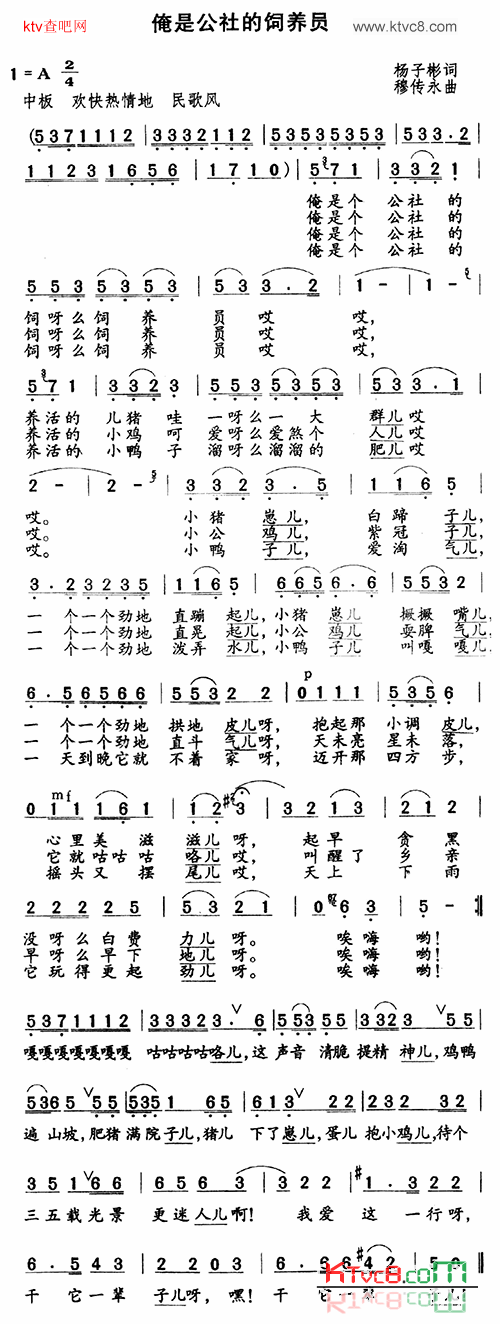 ktv查吧网
俺是公社的饲养员
www.ktvc8.com
1=A 2/4
杨子彬词
穆传永曲
中板 欢快热情地 民歌风
(5371112 | 3332112 | 5353535353 | 533·2 |
11231656 | 1710) | 571 | 3321 |
俺是个 公社的
俺是个 公社的
俺是个 公社的
俺是个 公社的
5535353 | 53·2 | 1- | 1- |
饲呀么饲养员哎哎,
饲呀么饲养员哎哎,
饲呀么饲养员哎哎,
571 | 3323 | 5535353 | 533·1 |
养活的儿猪哇一呀么一大群儿哎
养活的小鸡呵爱呀么爱煞个人儿哎
养活的小鸭子溜呀么溜溜的肥儿哎
2- | 2- | 3323·5 | 1165 |
哎。 小猪崽儿, 白蹄子儿,
哎。 小公鸡儿, 紫冠子儿,
哎。 小鸭子儿, 爱淘气儿,
3·23235 | 1165 | 66656·6 | 5532 |
一个一个劲地直蹦起儿,小猪崽儿 撅撅嘴儿,
一个一个劲地直晃起儿,小公鸡儿 耍脾气儿,
一个一个劲地泼弄水儿,小鸭子儿 叫嘎嘎儿,
6·56566 | 55322 | p 0111 | 5356 |
一个一个劲地 拱地皮儿呀, 抱起那 小调皮儿,
一个一个劲地 直斗气儿呀, 天未亮 星未落,
一天到晚它就 不着家呀, 迈开那 四方步,
mf 011 161 | 1·2#3 | 3213 | 212 |
心里美滋滋儿呀, 起早贪黑
它就咕咕咕咯儿哎, 叫醒了乡亲
摇头又摆尾儿哎, 天上下雨
22225 | 5321 | 063 | 5- :‖
没呀么白费力儿呀。 唉嗨哟!
早呀么早下地儿呀。 唉嗨哟!
它玩得更起劲儿呀。 唉嗨哟!
5371112 | 333323·∨6 | 55355 | 33223∨55 |
嘎嘎嘎嘎嘎嘎嘎 咕咕咕咕咯儿,这声音 清脆提精神儿,鸡鸭
5365∨55 | 53516565 | 613∨22 | 232232 |
遍山坡,肥猪满院子儿,猪儿下了崽儿,蛋儿抱小鸡儿,待个
351∨66 | 6563 | 322 | #1·322 |
三五载光景 更迷人儿啊! 我爱这一行呀,
6·543 | 2123 | 6·66#42 | 50 ‖
干它一辈子儿呀,嘿!干它一
KTvc8.com